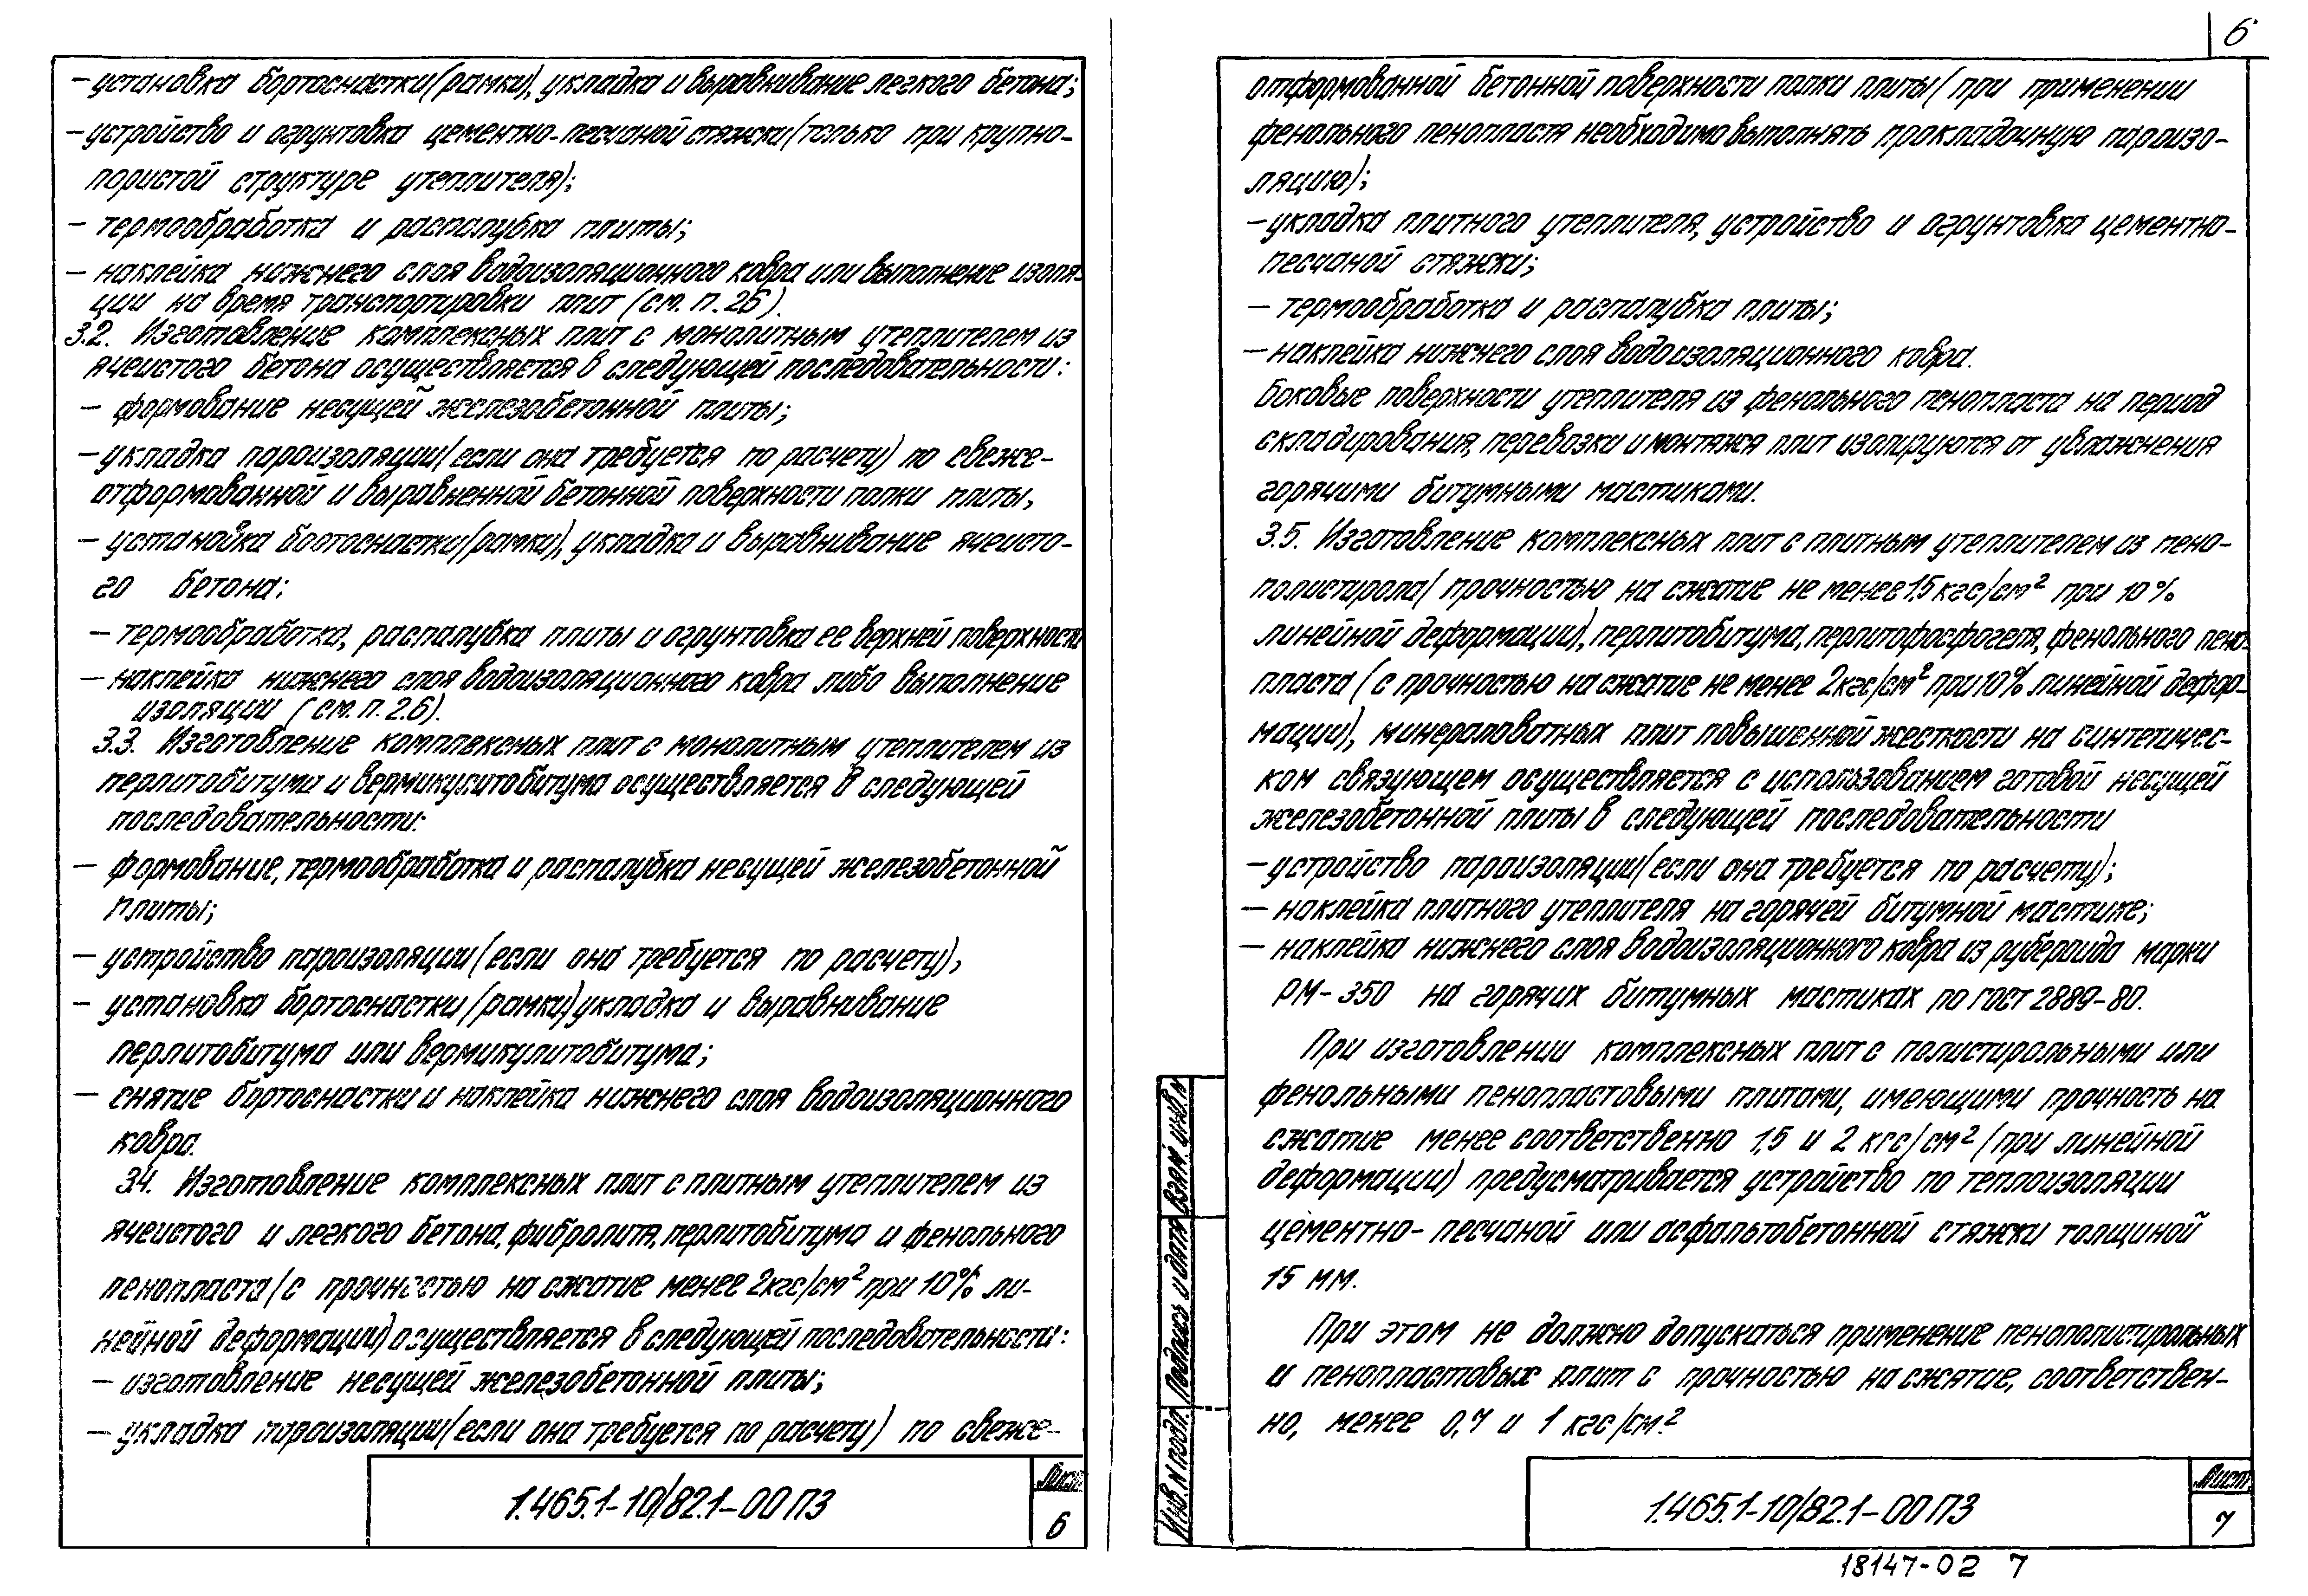 — установка бортоснастки (рамки), укладка и выравнивание легкого бетона;
— устройство и огрунтовка цементно-песчаной стяжки (только при крупно-
пористой структуре утеплителя);
— термообработка и распалубка плиты;
— наклейка нижнего слоя водоизоляционного ковра или выполнение изоля-
ции на время транспортировки плит (см. п. 2.6).
3.2. Изготовление комплексных плит с монолитным утеплителем из
ячеистого бетона осуществляется в следующей последовательности:
— формование несущей железобетонной плиты;
— укладка пароизоляции (если она требуется по расчету) по свеже-
отформованной и выравненной бетонной поверхности полки плиты,
— установка бортоснастки (рамки), укладка и выравнивание ячеисто-
го бетона;
— термообработка, распалубка плиты и огрунтовка ее верхней поверхности
— наклейка нижнего слоя водоизоляционного ковра либо выполнение
изоляции (см. п. 2.6).
3.3. Изготовление комплексных плит с монолитным утеплителем из
перлитобитума и вермикулитобитума осуществляется в следующей
последовательности:
— формование, термообработка и распалубка несущей железобетонной
плиты;
— устройство пароизоляции (если она требуется по расчету),
— установка бортоснастки (рамки) укладка и выравнивание
перлитобитума или вермикулитобитума;
— снятие бортоснастки и наклейка нижнего слоя водоизоляционного
ковра.
3.4. Изготовление комплексных плит с плитным утеплителем из
ячеистого и легкого бетона, фибролита, перлитобитума и фенольного
пенопласта (с прочностью на сжатие менее 2кгс/см² при 10% ли-
нейной деформации) осуществляется в следующей последовательности:
— изготовление несущей железобетонной плиты;
— укладка пароизоляции (если она требуется по расчету) по свеже-
1.465.1-10/82.1-00 ПЗ
Лист
6
6
отформованной бетонной поверхности полки плиты (при применении
фенольного пенопласта необходимо выполнять прокладочную пароизо-
ляцию);
— укладка плитного утеплителя, устройство и огрунтовка цементно-
песчаной стяжки;
— термообработка и распалубка плиты;
— наклейка нижнего слоя водоизоляционного ковра.
Боковые поверхности утеплителя из фенольного пенопласта на период
складирования, перевозки и монтажа плит изолируются от увлажнения
горячими битумными мастиками.
3.5. Изготовление комплексных плит с плитным утеплителем из пено-
полистирола (прочностью на сжатие не менее 1,5 кгс/см² при 10%
линейной деформации), перлитобитума, перлитофосфогеля, фенольного пено-
пласта (с прочностью на сжатие не менее 2кгс/см² при 10% линейной дефор-
мации), минераловатных плит повышенной жесткости на синтетичес-
ком связующем осуществляется с использованием готовой несущей
железобетонной плиты в следующей последовательности
— устройство пароизоляции (если она требуется по расчету);
— наклейка плитного утеплителя на горячей битумной мастике;
— наклейка нижнего слоя водоизоляционного ковра из рубероида марки
РМ-350 на горячих битумных мастиках по ГОСТ 2889-80.
При изготовлении комплексных плит с полистирольными или
фенольными пенопластовыми плитами, имеющими прочность на
сжатие менее соответственно 1,5 и 2 кгс/см² (при линейной
деформации) предусматривается устройство по теплоизоляции
цементно-песчаной или асфальтобетонной стяжки толщиной
15 мм.
При этом не должно допускаться применение пенополистирольных
и пенопластовых плит с прочностью на сжатие, соответствен-
но, менее 0,7 и 1 кгс/см²
Взам. инв. №
Подпись и дата
Инв. № подл.
1.465.1-10/82.1-00 ПЗ
Лист
7
18147-02 7